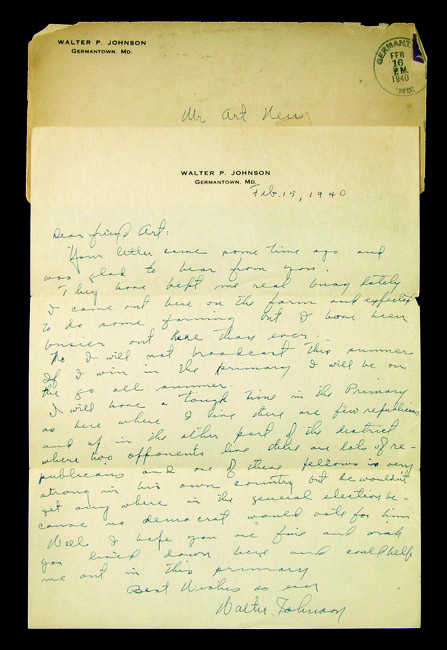 WALTER P. JOHNSON
GERMANTOWN, MD.
GERMANTOWN
FEB
16
P.M.
1940
MD.
Mr. Art
WALTER P. JOHNSON
GERMANTOWN, MD.
Feb. 15, 1940
Dear friend Art:
Your letter came some time ago and
was glad to hear from you.
They have kept me real busy lately
I came out here on the farm and expected
to do some farming but I have been
busier out here than ever.
No I will not broadcast this summer
If I win in the primary I will be on
the go all summer.
I will have a tough time in the Primary
as here where I live there are few republicans
and up in the other part of the district
where two opponents live there are lots of re-
publicans and one of these fellows is very
strong in his own country but he wouldn't
get any where in the general election be-
cause no democrat would vote for him
Well I hope you are fine and wish
you lived down here and could help
me out in this primary
Best Wishes as ever
Walter Johnson